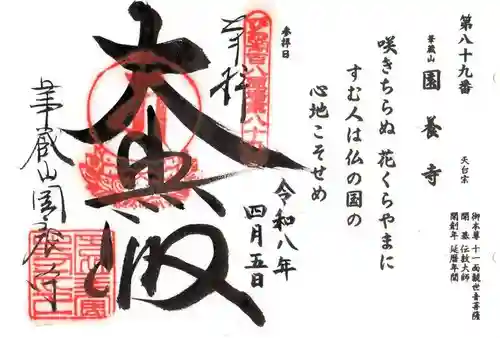 第八十九番
華蔵山
園養寺
天台宗
御本尊 十一面観世音菩薩
開基 伝教大師
開創年 延暦年間
咲きちらぬ 花くらやまに
すむ人は仏の国の
心地こそせめ
参拝日
奉拝
令和八年
四月五日
大悲殿
華蔵山園養寺